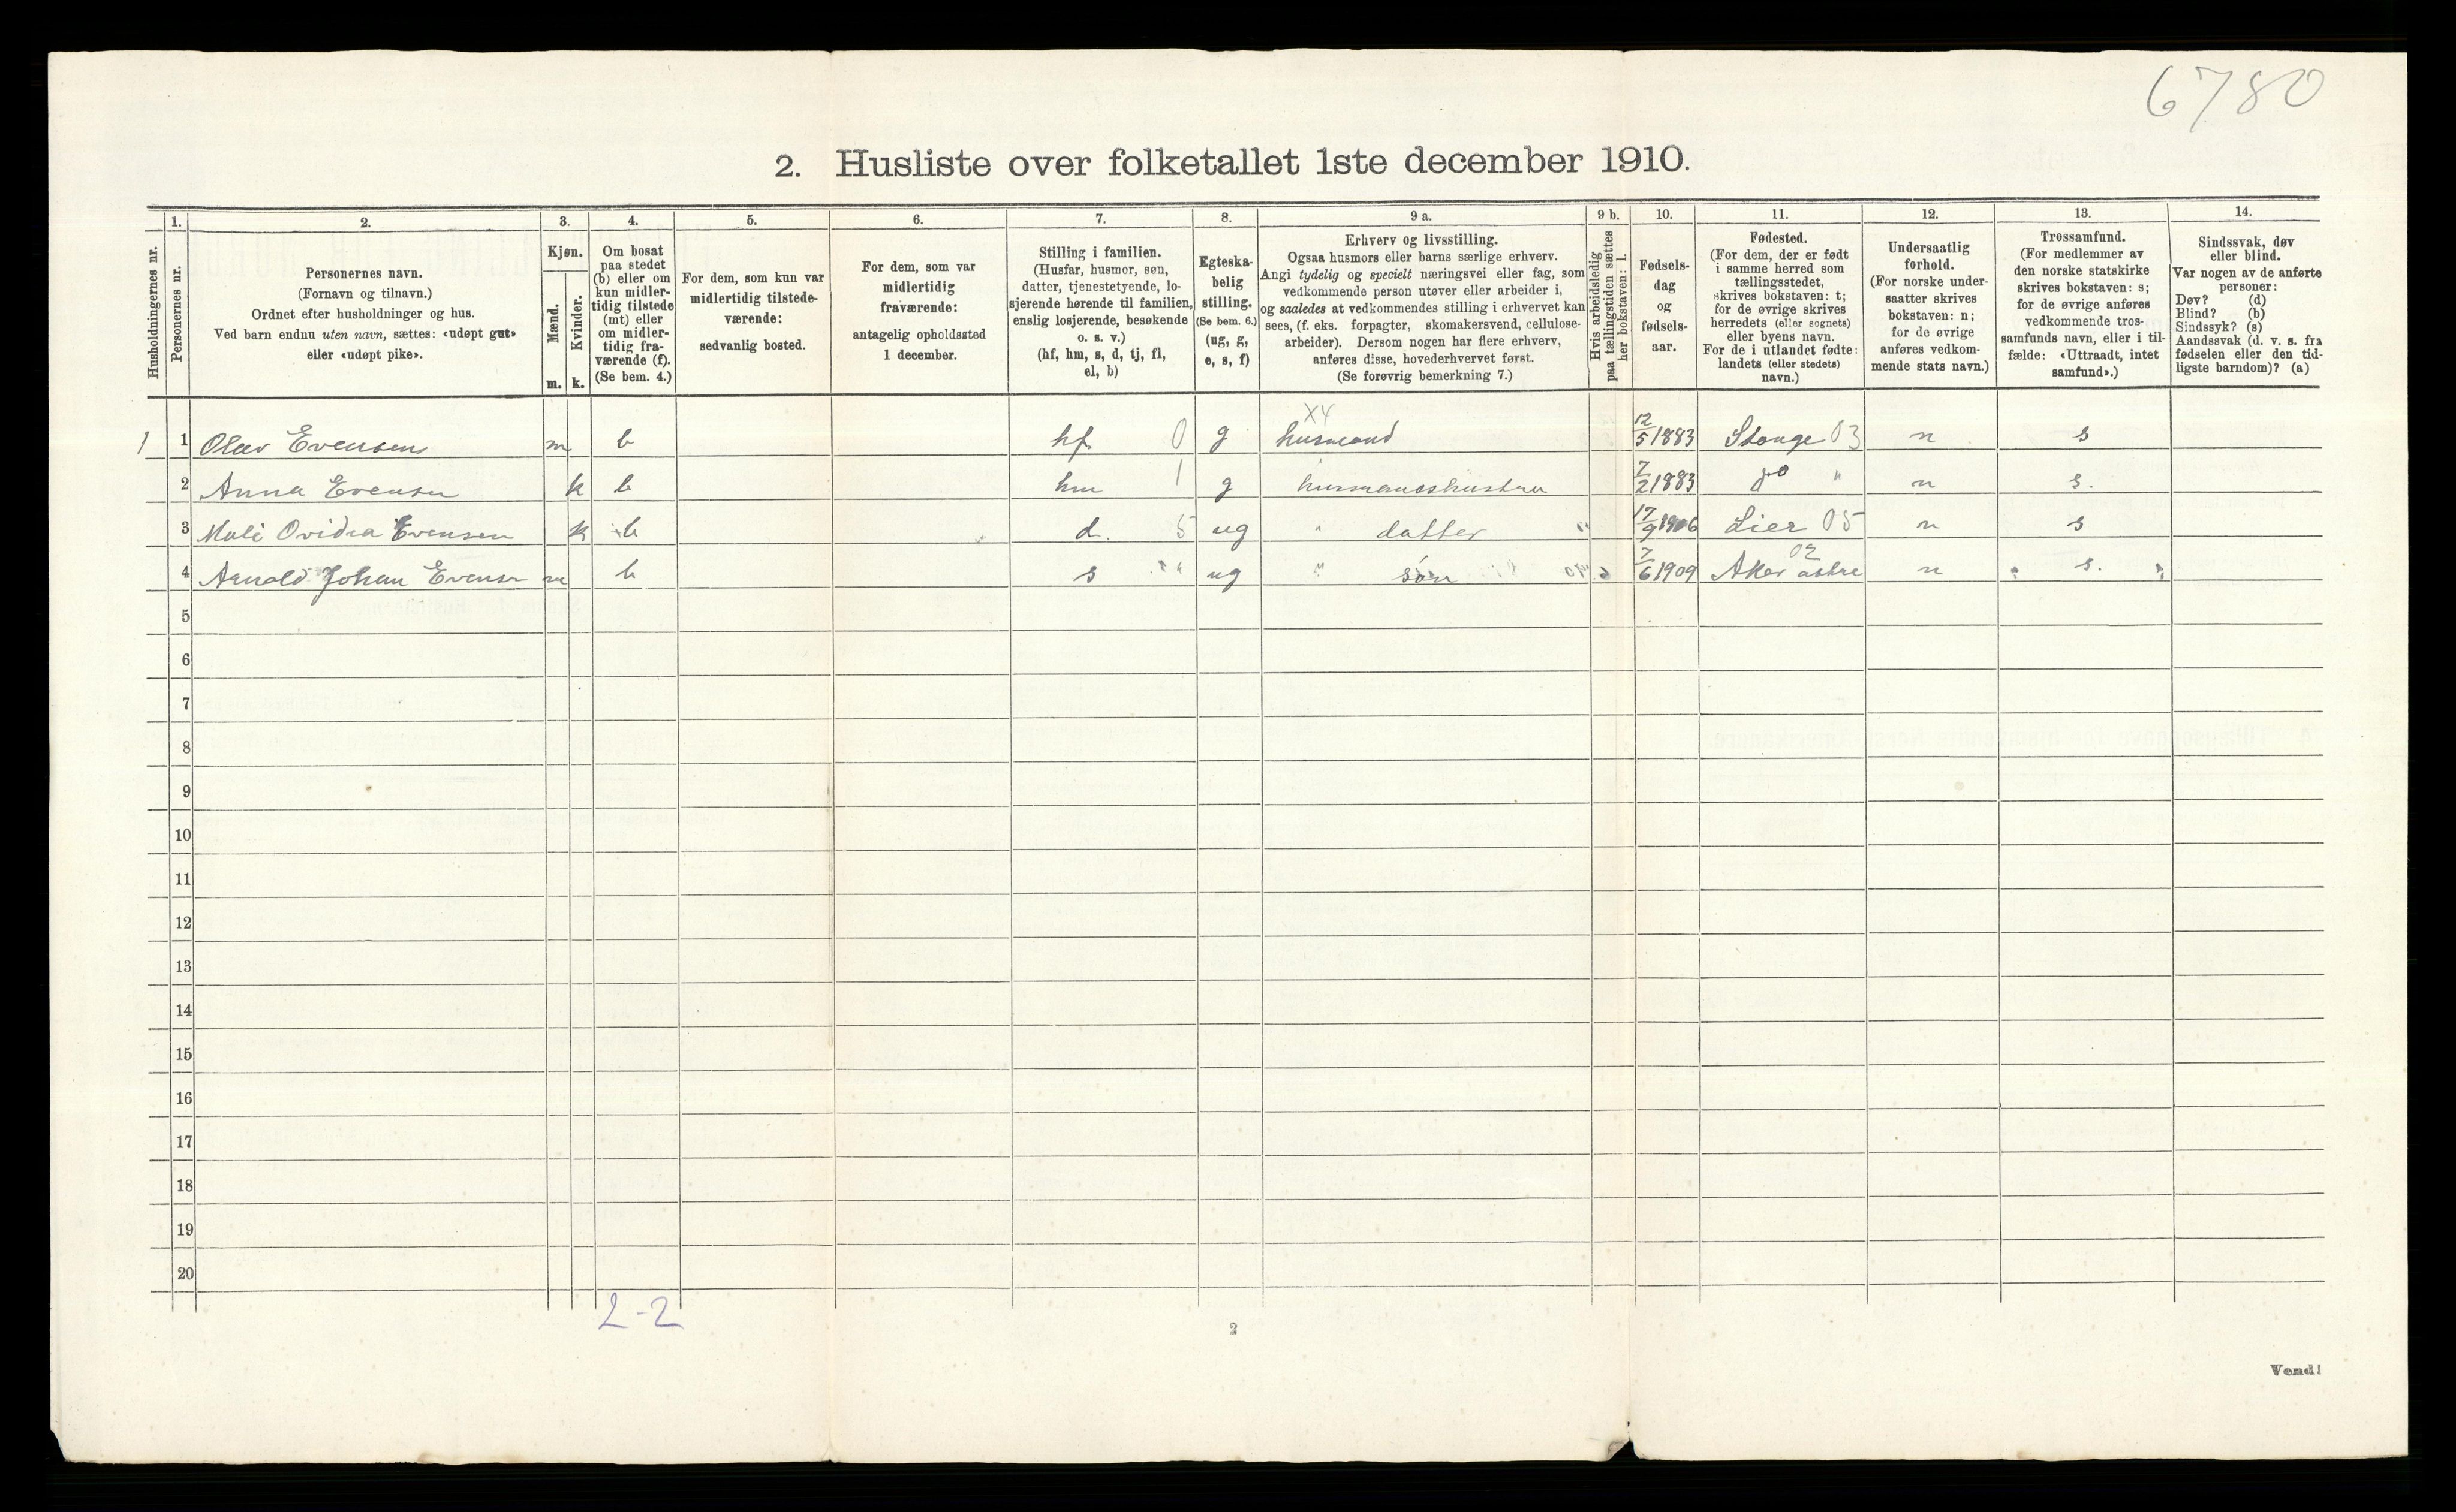 6780
2. Husliste over folketallet 1ste december 1910.
Husholdningernes nr.
1.
Personernes nr.
2.
Personernes navn.
(Fornavn og tilnavn.)
Ordnet efter husholdninger og hus.
Ved barn endnu uten navn, sættes: «udøpt gut»
eller «udøpt pike».
3.
Kjøn.
Mænd.
Kvinder.
m. k.
4.
Om bosat
paa stedet
(b) eller om
kun midler-
tidig tilstede
(mt) eller
om midler-
tidig fra-
værende (f).
(Se bem. 4.)
5.
For dem, som kun var
midlertidig tilstede-
værende:
sedvanlig bosted.
6.
For dem, som var
midlertidig
fraværende:
antagelig opholdssted
1 december.
7.
Stilling i familien.
(Husfar, husmor, søn,
datter, tjenestetyende, lo-
sjerende hørende til familien,
enslig losjerende, besøkende
o. s. v.)
(hf, hm, s, d, tj, fl,
el, b)
8.
Egteska-
belig
stilling.
(Se bem. 6.)
(ug, g,
e, s, f)
9 a.
Erhverv og livsstilling.
Ogsaa husmors eller barns særlige erhverv.
Angi tydelig og specielt næringsvei eller fag, som
vedkommende person utøver eller arbeider i,
og saaledes at vedkommendes stilling i erhvervet kan
sees, (f. eks. forpagter, skomakersvend, cellulose-
arbeider). Dersom nogen har flere erhverv,
anføres disse, hovederhvervet først.
(Se forøvrig bemerkning 7.)
9 b.
Hvis arbeidsledig
paa tællingstiden sættes
her bokstaven: l.
10.
Fødsels-
dag
og
fødsels-
aar.
11.
Fødested.
(For dem, der er født
i samme herred som
tællingsstedet,
skrives bokstaven: t;
for de øvrige skrives
herredets (eller sognets)
eller byens navn.
For de i utlandet fødte:
landets (eller stedets)
navn.)
12.
Undersaatlig
forhold.
(For norske under-
saatter skrives
bokstaven: n;
for de øvrige
anføres vedkom-
mende stats navn.)
13.
Trossamfund.
(For medlemmer av
den norske statskirke
skrives bokstaven: s;
for de øvrige anføres
vedkommende tros-
samfunds navn, eller i til-
fælde: «Uttraadt, intet
samfund».)
14.
Sindssvak, døv
eller blind.
Var nogen av de anførte
personer:
Døv? (d)
Blind? (b)
Sindssyk? (s)
Aandssvak (d. v. s. fra
fødselen eller den tid-
ligste barndom)? (a)
X4
1 1 Olav Evensen m b hf 0 g husmand 12/5 1883 Stange 03 n s
2 Anna Evensen k b hm 1 g husmandshustru 7/2 1883 do " n s.
3 Ovidia Evensen k b d. 5 ug " datter " 17/9 1906 Lier 05 n s
02
4 Arnold Johan Evensen m b s " ug " søn 7/6 1909 Aker n s.
5
6
7
8
9
10
11
12
13
14
15
16
17
18
19
20
2-2
2
Vend!